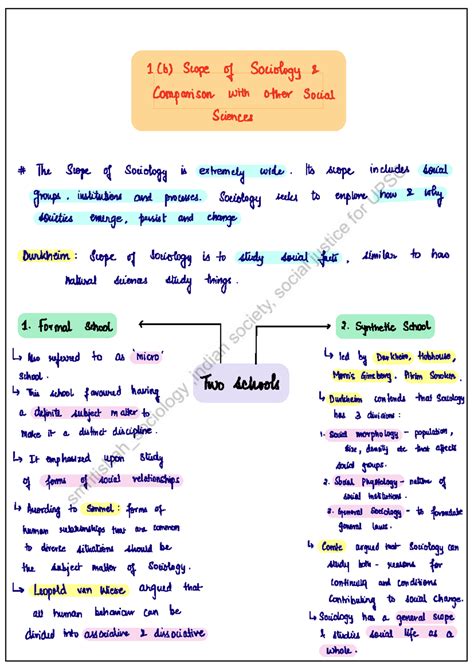 1 (b) Scope of Sociology &
Comparison with other Social
Sciences
# The Scope of Sociology is extremely wide. Its scope includes social
groups, institutions and processes. Sociology seeks to explore how & why
societies emerge, persist and change
Durkheim: Scope of Sociology is to study social facts, similar to how
natural sciences study things.
Two Schools
1. Formal School
↳ Also referred to as 'micro'
school.
↳ This school favoured having
a definite subject matter to
make it a distinct discipline.
↳ It emphasized upon study
of forms of social relationships
↳ According to Simmel: forms of
human relationships that are common
to diverse situations should be
the subject matter of Sociology.
↳ Leopold van Wiese argued that
all human behaviour can be
divided into associative & dissociative
2. Synthetic School
↳ led by Durkheim, Hobhouse,
Morris Ginsberg, Pitrim Sorokon.
↳ Durkheim contends that Sociology
has 3 divisions:
1. Social morphology - population,
size, density etc that affects
social groups.
2. Social Physiology - nature of
social institutions.
3. General Sociology - to formulate
general laws.
↳ Comte argued that Sociology can
study both - reasons for
continuity and conditions
contributing to social change.
↳ Sociology has a general scope
& studies social life as a
whole.
smritishah_sociology, indian society, social justice for UPSC